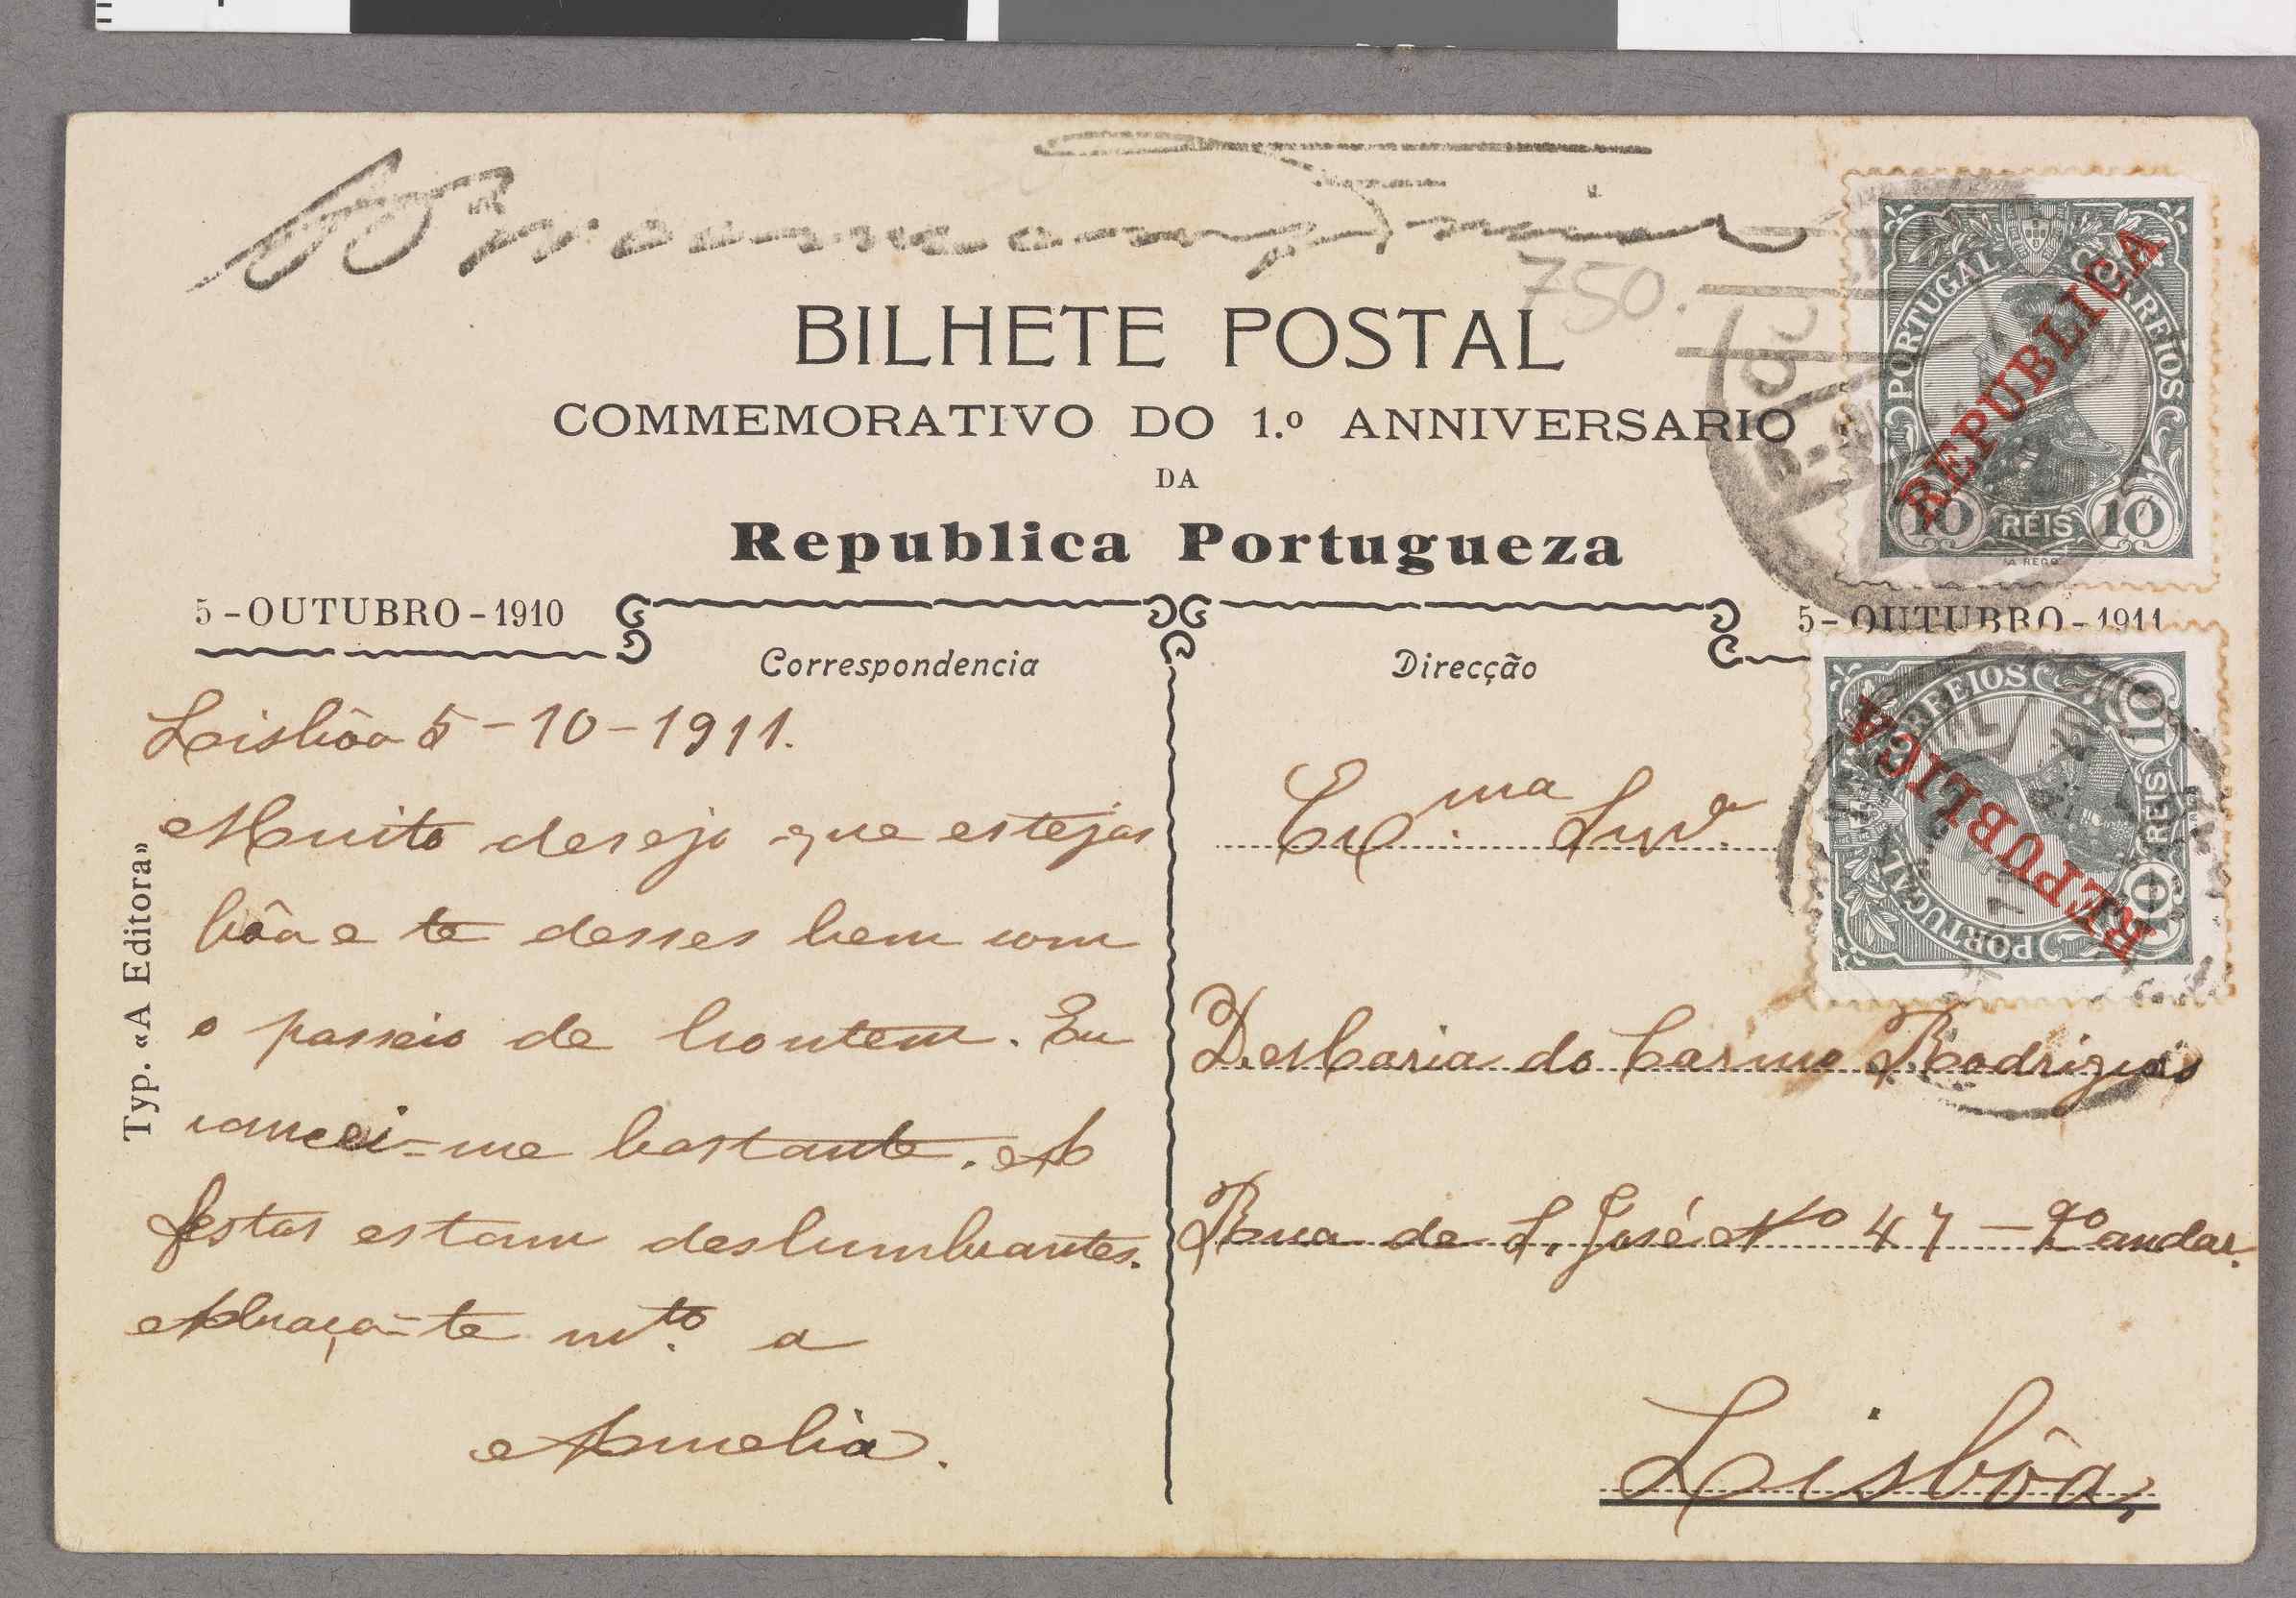 750.
BILHETE POSTAL
COMMEMORATIVO DO 1.º ANNIVERSARIO
DA
Republica Portugueza
5-OUTUBRO-1910
5-OUTUBRO-1911
Correspondencia
Lisbôa 5-10-1911.
Muito desejo que estejas
bôa e te desses bem com
o passeio de hontem. Eu
cancei-me bastante. As
festas estam deslumbrantes.
Abraça-te m.to a
Amelia.
Typ. «A Editora»
Direcção
Ex.ma Snr.a
D. Maria do Carmo Rodrigues
Rua de S. José Nº 47 – 2º andar.
Lisbôa,
PORTUGAL CORREIOS
REPUBLICA
10 REIS 10
PORTUGAL CORREIOS
REPUBLICA
10 REIS 10